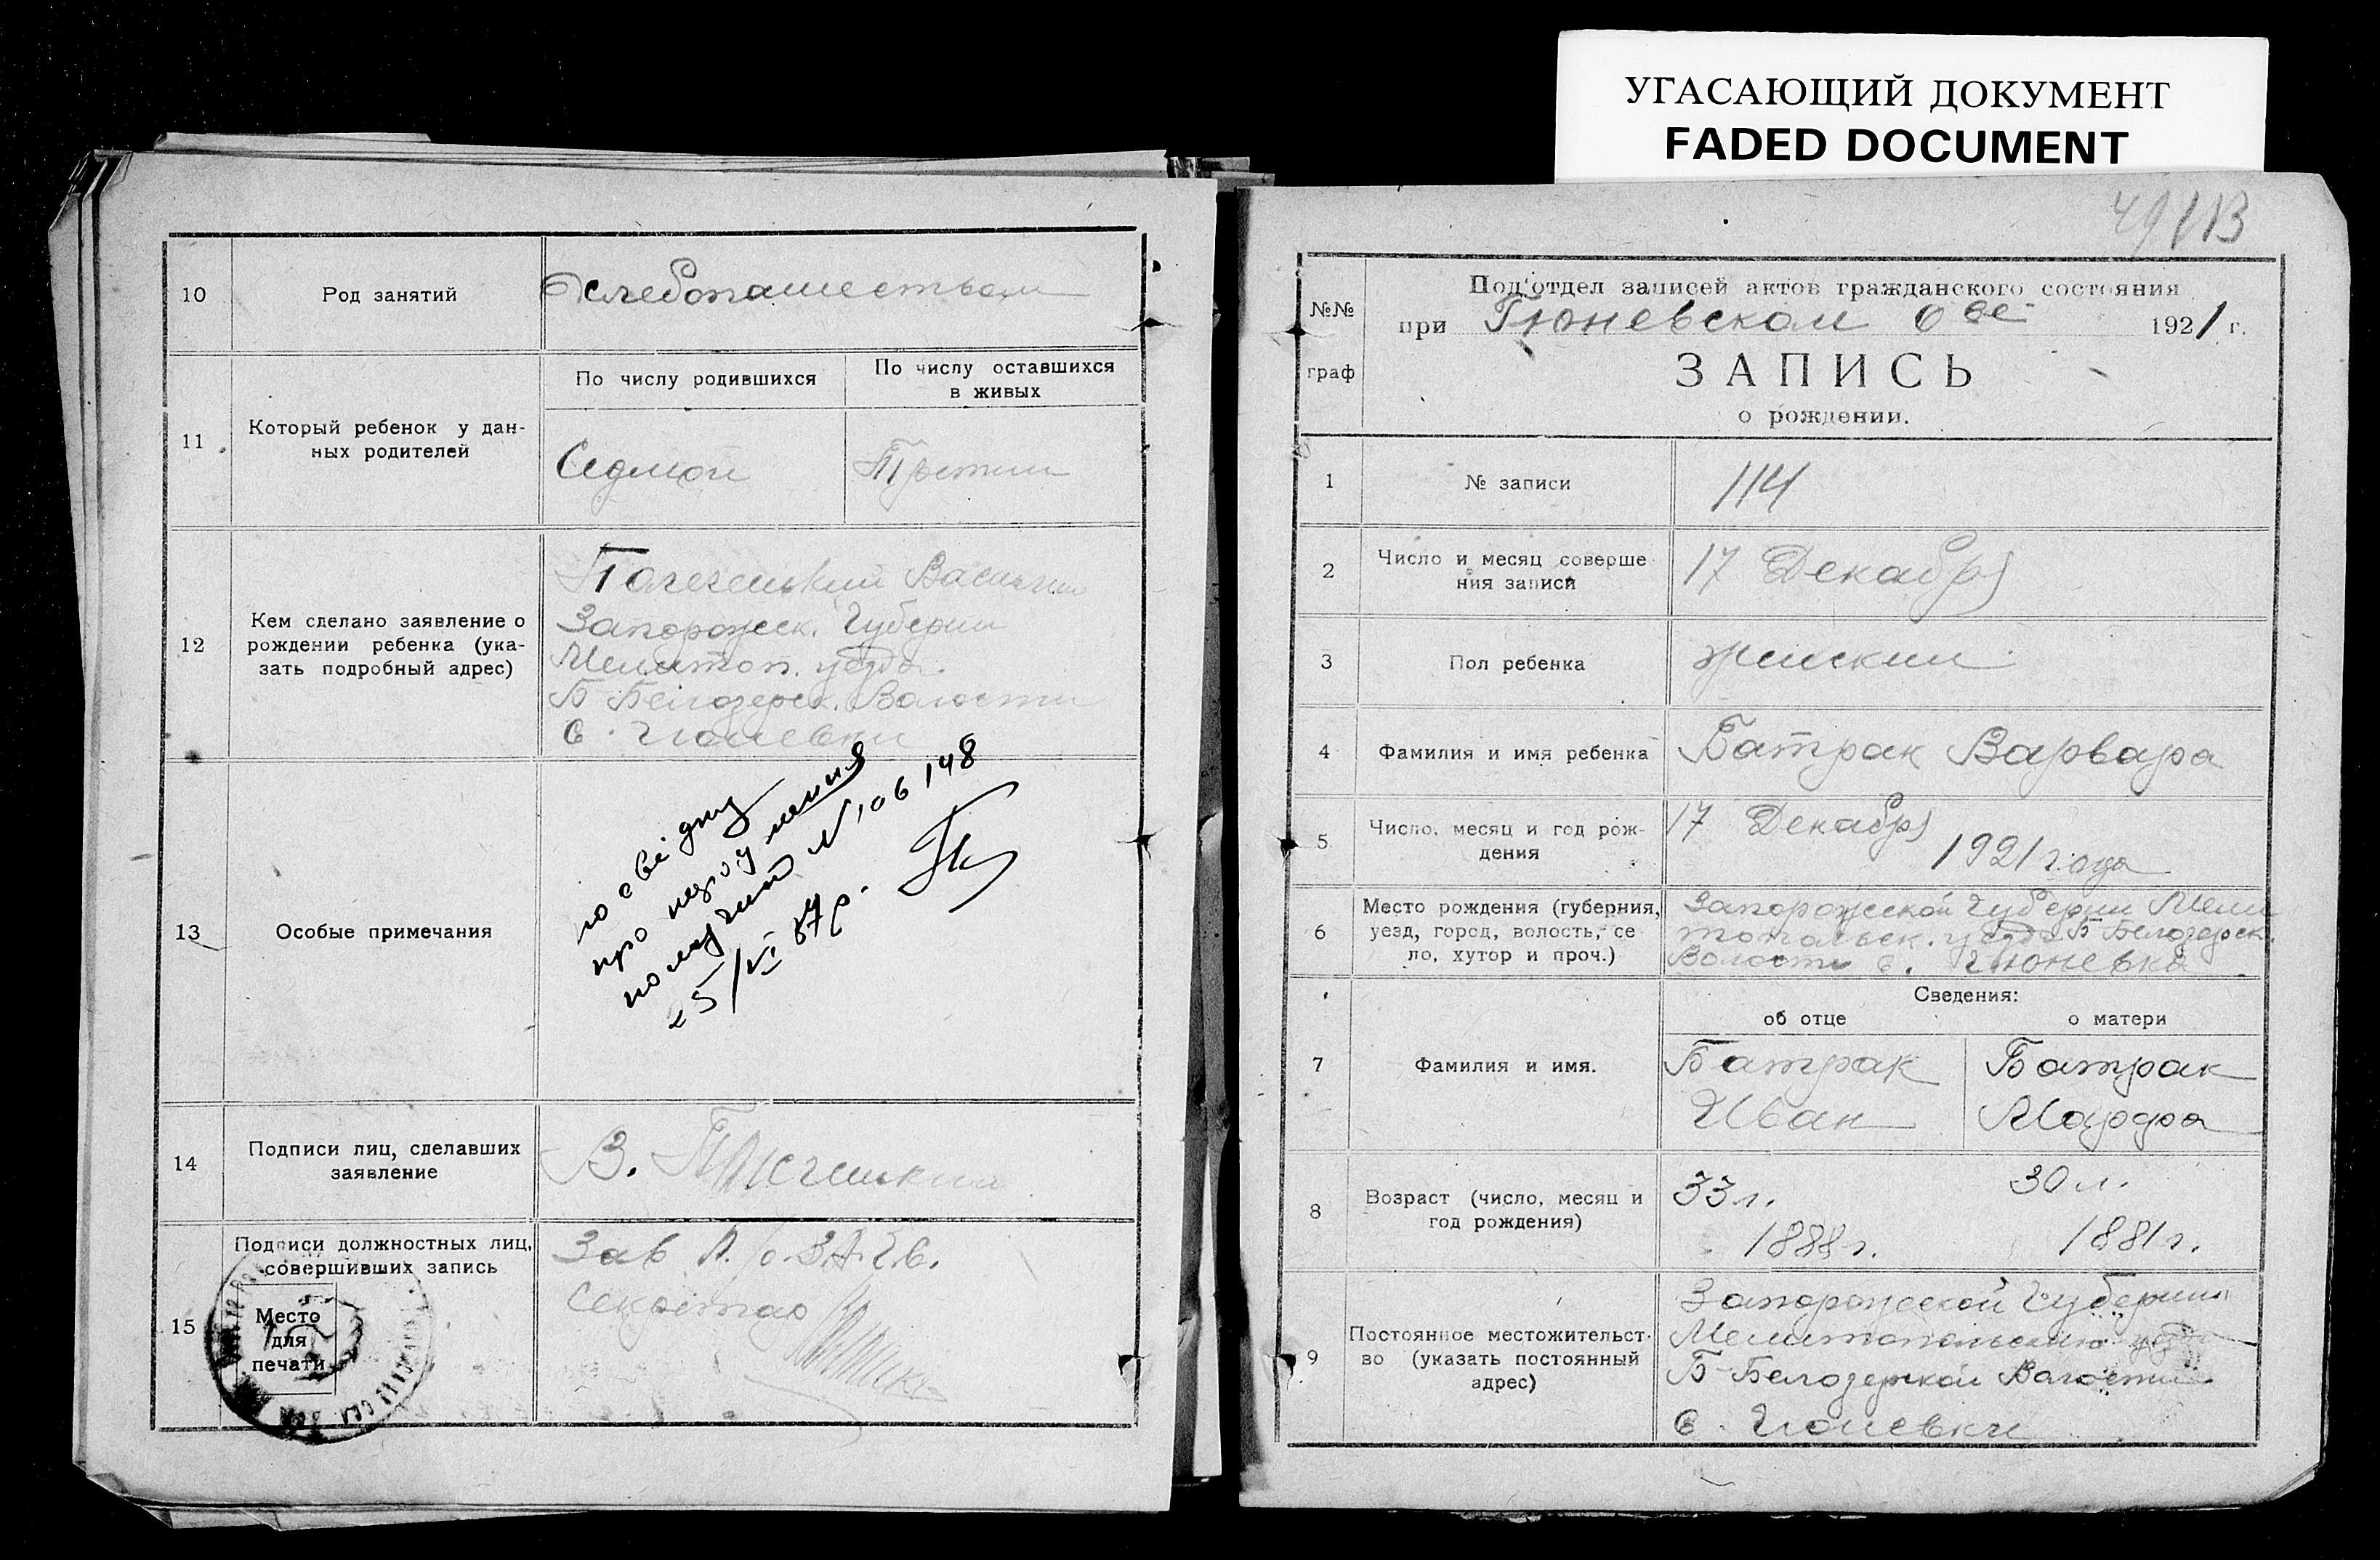 УГАСАЮЩИЙ ДОКУМЕНТ
FADED DOCUMENT
10
Род занятий
Хлебопашеством
11
Который ребенок у дан-
ных родителей
По числу родившихся
По числу оставшихся
в живых
Седмой
Третий
12
Кем сделано заявление о
рождении ребенка (ука-
зать подробный адрес)
Василий
Запорожск. Губернии
Мелитоп. уезда.
Б Белозерск. Волости
с. Гюневки
13
Особые примечания
по
про
№ 106148
25/VI 87р.
14
Подписи лиц, сделавших
заявление
В.
15
Подписи должностных лиц,
совершивших запись
Место
для
печати
Зав П. О. З.А.Г.С.
Секретар
49 113
№№
граф
Под'отдел записей актов гражданского состояния
при Гюневском 1921 г.
ЗАПИСЬ
о рождении.
1
№ записи
114
2
Число и месяц соверше
ния записи
17 Декабря
3
Пол ребенка
женский
4
Фамилия и имя ребенка
Батрак Варвара
5
Число, месяц и год рож-
дения
17 Декабря
1921 года
6
Место рождения (губерния,
уезд, город, волость, се
ло, хутор и проч.)
Запорожской Губернии Мели
топольск. уезда Б Белозерск.
Волости с. Гюневка
7
Фамилия и имя.
Сведения:
об отце
о матери
Батрак
Иван
Батрак
Марфа
8
Возраст (число, месяц и
год рождения)
33 л.
1888 г.
30 л.
1881 г.
9
Постоянное местожительст-
во (указать постоянный
адрес)
Запорожской Губернии
Мелитопольскаго уезда
Б-Белозерской Волости
с. Гюневки